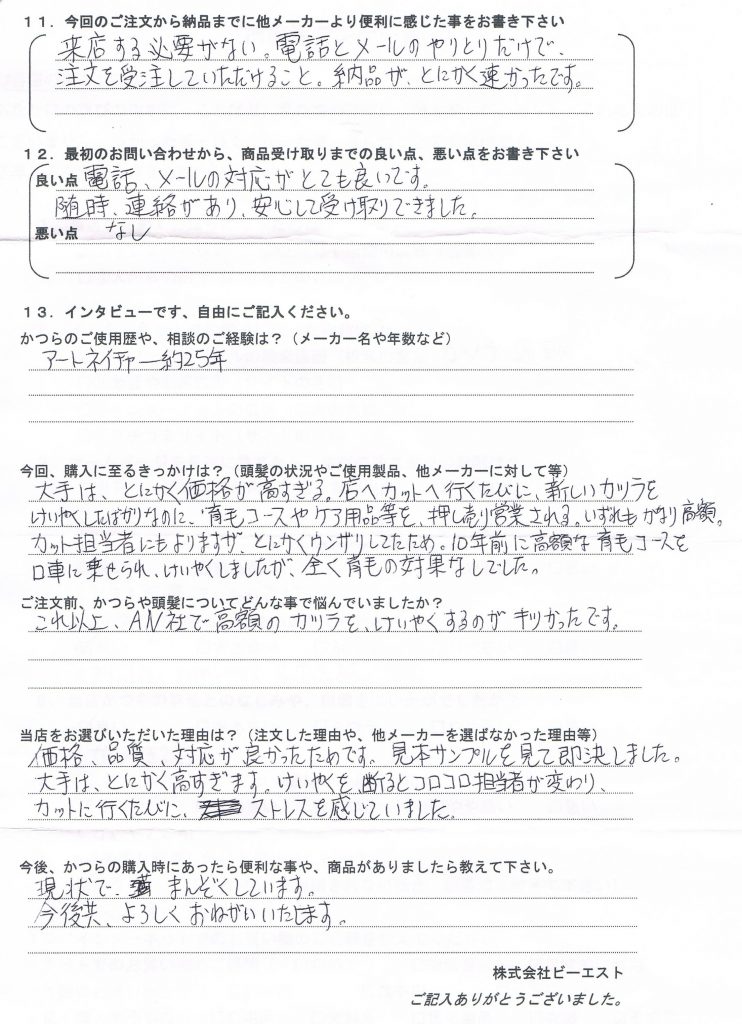 １１．今回のご注文から納品までに他メーカーより便利に感じた事をお書き下さい
来店する必要がない。電話とメールのやりとりだけで、
注文を受注していただけること。納品が、とにかく速かったです。
１２．最初のお問い合わせから、商品受け取りまでの良い点、悪い点をお書き下さい
良い点 電話、メールの対応がとても良いです。
随時、連絡があり、安心して受け取りできました。
悪い点 なし
１３．インタビューです、自由にご記入ください。
かつらのご使用歴や、相談のご経験は？（メーカー名や年数など）
アートネイチャー約25年
今回、購入に至るきっかけは？（頭髪の状況やご使用製品、他メーカーに対して等）
大手は、とにかく価格が高すぎる。店へカットへ行くたびに、新しいカツラを
けいやくしたばかりなのに、育毛コースやケア用品等を、押し売り営業される。いずれもかなり高額。
カット担当者にもよりますが、とにかくウンザリしてたため。10年前に高額な育毛コースを
口車に乗せられ、けいやくしましたが、全く育毛の効果なしでした。
ご注文前、かつらや頭髪についてどんな事で悩んでいましたか？
これ以上、AN社で高額のカツラを、けいやくするのがキツかったです。
当店をお選びいただいた理由は？（注文した理由や、他メーカーを選ばなかった理由等）
価格、品質、対応が良かったためです。見本サンプルを見て即決しました。
大手は、とにかく高すぎます。けいやくを、断るとコロコロ担当者が変わり、
カットに行くたびに、ストレスを感じていました。
今後、かつらの購入時にあったら便利な事や、商品がありましたら教えて下さい。
現状で、まんぞくしています。
今後共、よろしくおねがいいたします。
株式会社ビーエスト
ご記入ありがとうございました。